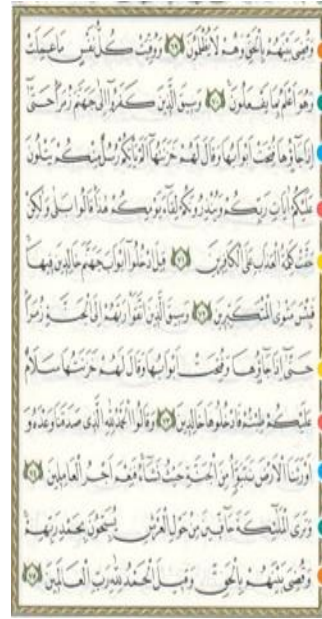 وَقُضِيَ بَيْنَهُمْ بِالْحَقِّ وَهُمْ لَا يُظْلَمُونَ ﴿٦٩﴾ وَوُفِّيَتْ كُلُّ نَفْسٍ مَا عَمِلَتْ
وَهُوَ أَعْلَمُ بِمَا يَفْعَلُونَ ﴿٧٠﴾ وَسِيقَ الَّذِينَ كَفَرُوا إِلَى جَهَنَّمَ زُمَرًا حَتَّى
إِذَا جَاؤُهَا فُتِحَتْ أَبْوَابُهَا وَقَالَ لَهُمْ خَزَنَتُهَا أَلَمْ يَأْتِكُمْ رُسُلٌ مِنْكُمْ يَتْلُونَ
عَلَيْكُمْ آيَاتِ رَبِّكُمْ وَيُنْذِرُونَكُمْ لِقَاءَ يَوْمِكُمْ هٰذَا قَالُوا بَلَى وَلٰكِنْ
حَقَّتْ كَلِمَةُ الْعَذَابِ عَلَى الْكَافِرِينَ ﴿٧١﴾ قِيلَ ادْخُلُوا أَبْوَابَ جَهَنَّمَ خَالِدِينَ فِيهَا
فَبِئْسَ مَثْوَى الْمُتَكَبِّرِينَ ﴿٧٢﴾ وَسِيقَ الَّذِينَ اتَّقَوْا رَبَّهُمْ إِلَى الْجَنَّةِ زُمَرًا
حَتَّى إِذَا جَاؤُهَا وَفُتِحَتْ أَبْوَابُهَا وَقَالَ لَهُمْ خَزَنَتُهَا سَلَامٌ
عَلَيْكُمْ طِبْتُمْ فَادْخُلُوهَا خَالِدِينَ ﴿٧٣﴾ وَقَالُوا الْحَمْدُ لِلّٰهِ الَّذِي صَدَقَنَا وَعْدَهُ وَ
أَوْرَثَنَا الْأَرْضَ نَتَبَوَّأُ مِنَ الْجَنَّةِ حَيْثُ نَشَاءُ فَنِعْمَ أَجْرُ الْعَامِلِينَ ﴿٧٤﴾
وَتَرَى الْمَلٰئِكَةَ حَافِّينَ مِنْ حَوْلِ الْعَرْشِ يُسَبِّحُونَ بِحَمْدِ رَبِّهِمْ
وَقُضِيَ بَيْنَهُمْ بِالْحَقِّ وَقِيلَ الْحَمْدُ لِلّٰهِ رَبِّ الْعَالَمِينَ ﴿٧٥﴾